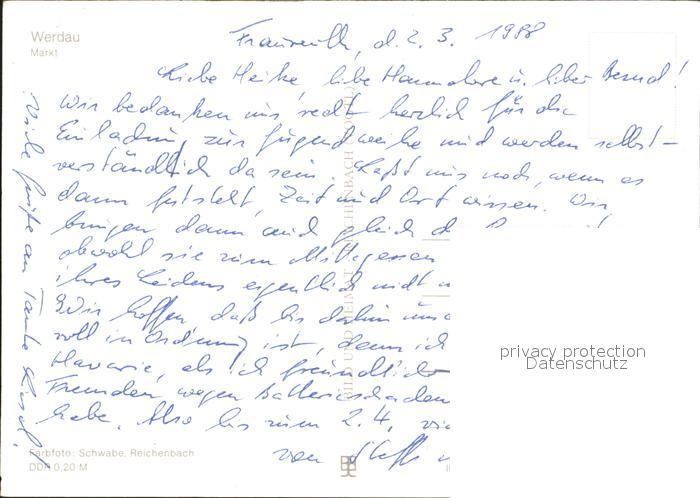 Werdau
Markt
Fraureuth, d. 2. 3. 1988
Liebe Heike, liebe Hannelore u. lieber Bernd!
Wir bedanken uns recht herzlich für die
Einladung zur Jugendweihe und werden selbst-
verständlich da sein. Laßt uns noch, wenn es
dann feststeht, Zeit und Ort wissen. Wir
bringen dann auch gleich d
obwohl sie zum Mittagessen
ihres Leidens eigentlich nicht
Wir hoffen, daß bis dahin uns
voll in Ordnung ist, denn ich
Havarie, als ich freundlicher
Fremden wegen Batterieschaden
habe. Also bis zum 2.4.
von
Viele Grüße an Tante
privacy protection
Datenschutz
Farbfoto: Schwabe, Reichenbach
DDR 0,20 M
BILD UND HEIMAT REICHENBACH